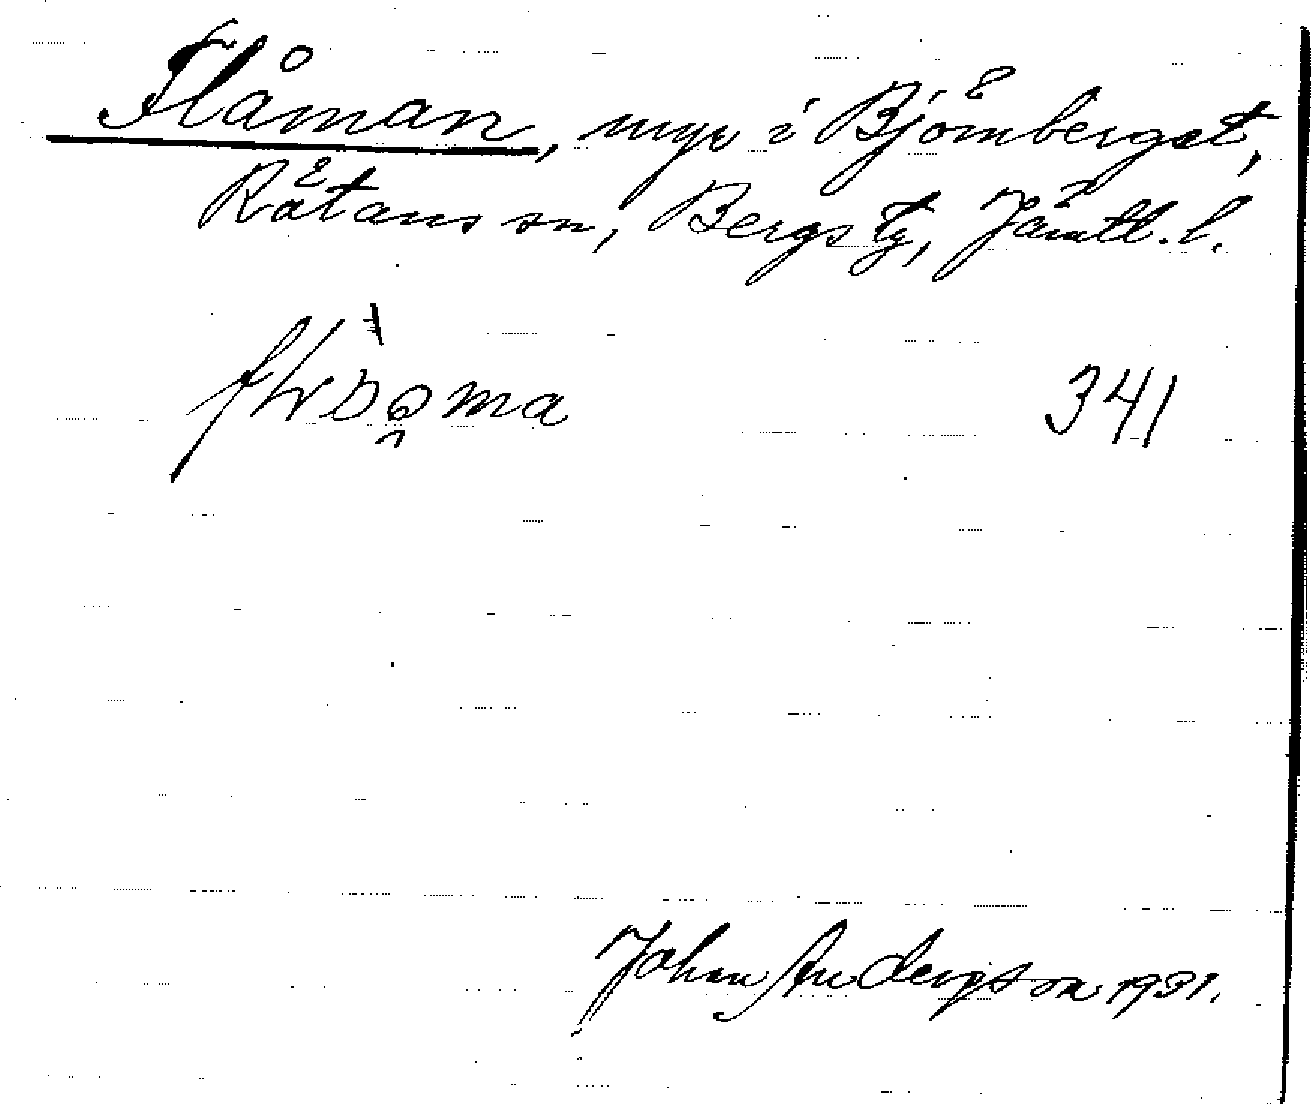 Flåman, myr i Björnbergst,
Råtans sn, Bergs tg, Jämtl. l.
341
Johan Anderson 1931.